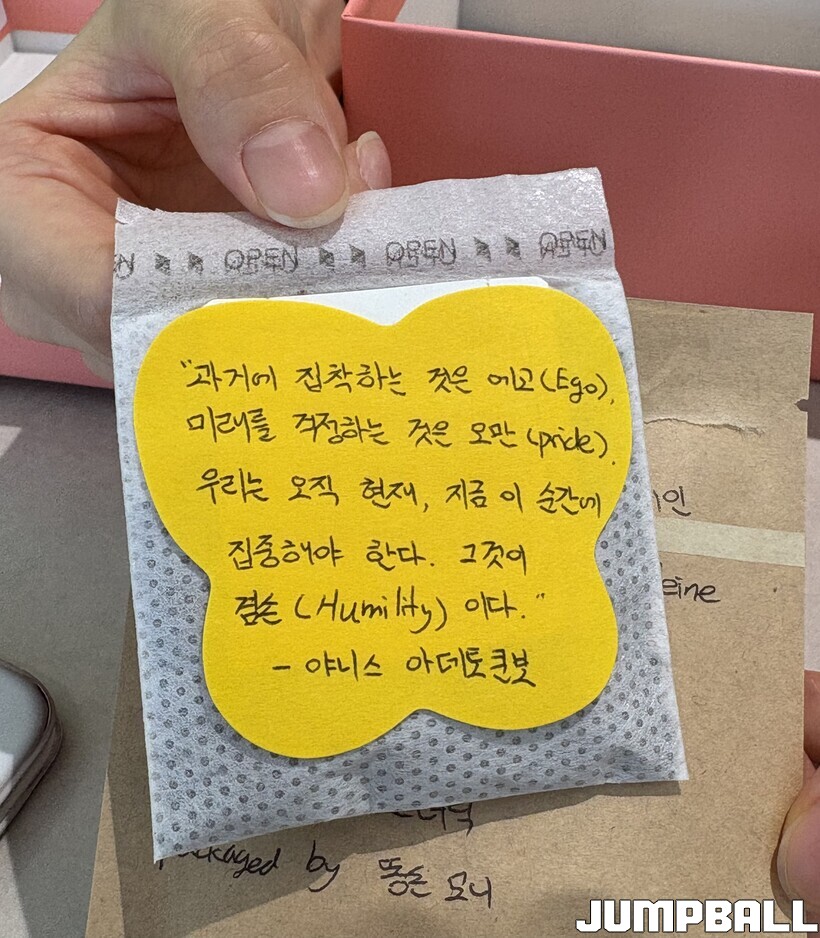 OPEN OPEN OPEN
"과거에 집착하는 것은 에고(Ego),
미래를 걱정하는 것은 오만(pride).
우리는 오직 현재, 지금 이 순간에
집중해야 한다. 그것이
겸손(Humility)이다."
- 야니스 아데토쿤보
인
eine
packaged by 똥손 모니
JUMPBALL